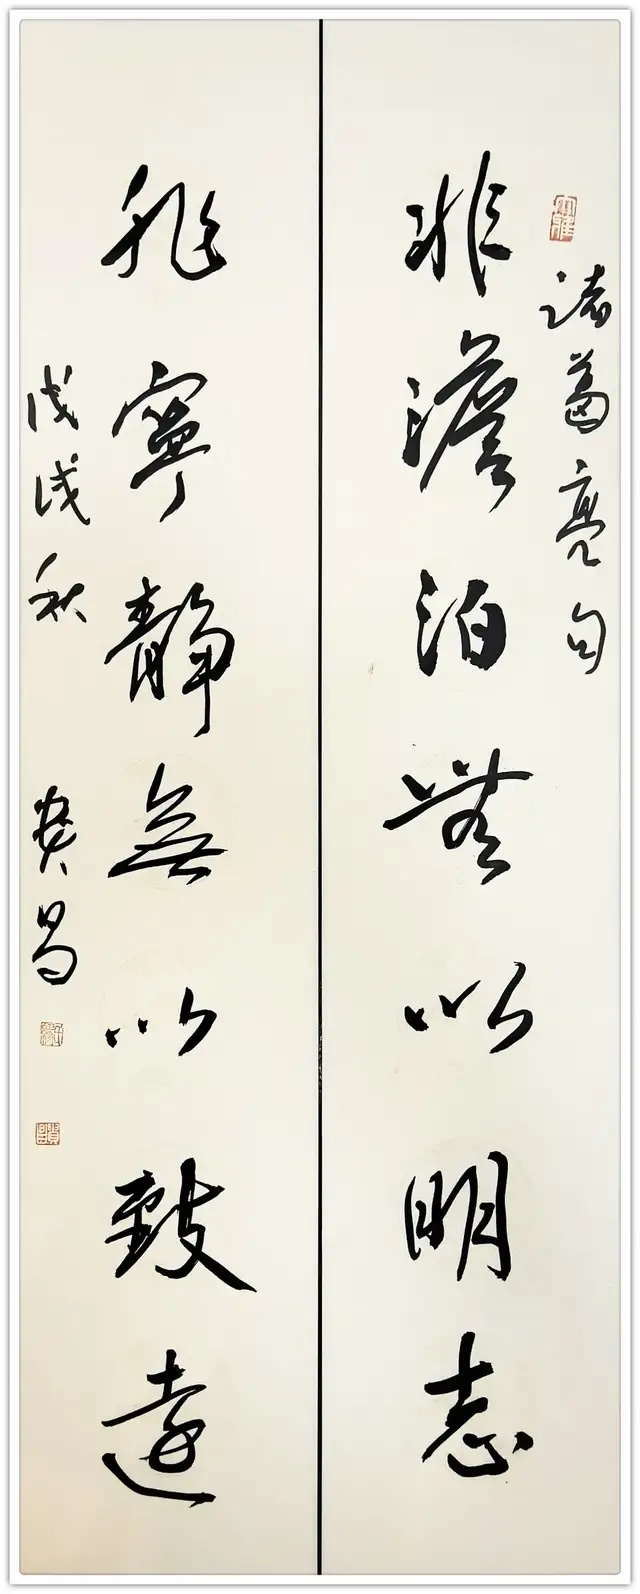 諸葛亮句
非澹泊無以明志
非寧靜無以致遠
戊戌秋
昌